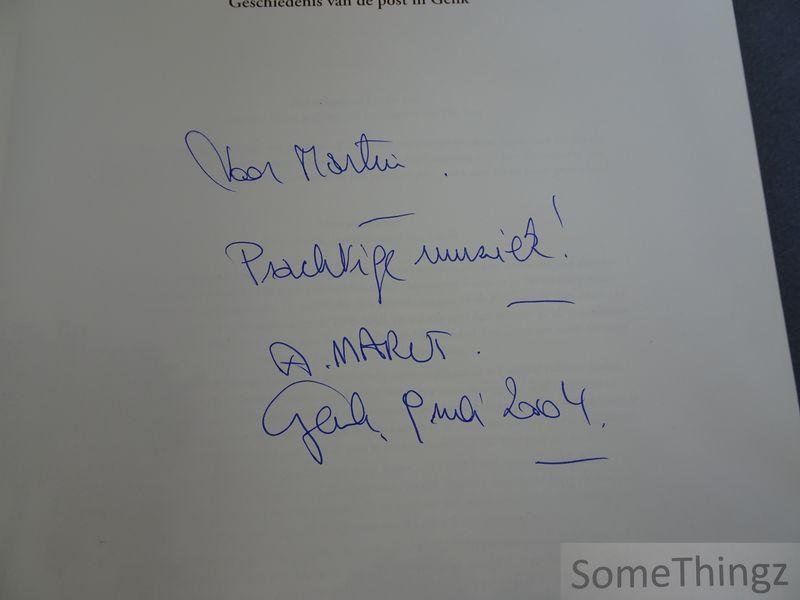 Geschiedenis van de post in Genk
Voor Martin.
Prachtige muziek!
A. MARUT.
Genk, 9 mei 2004.
SomeThingz